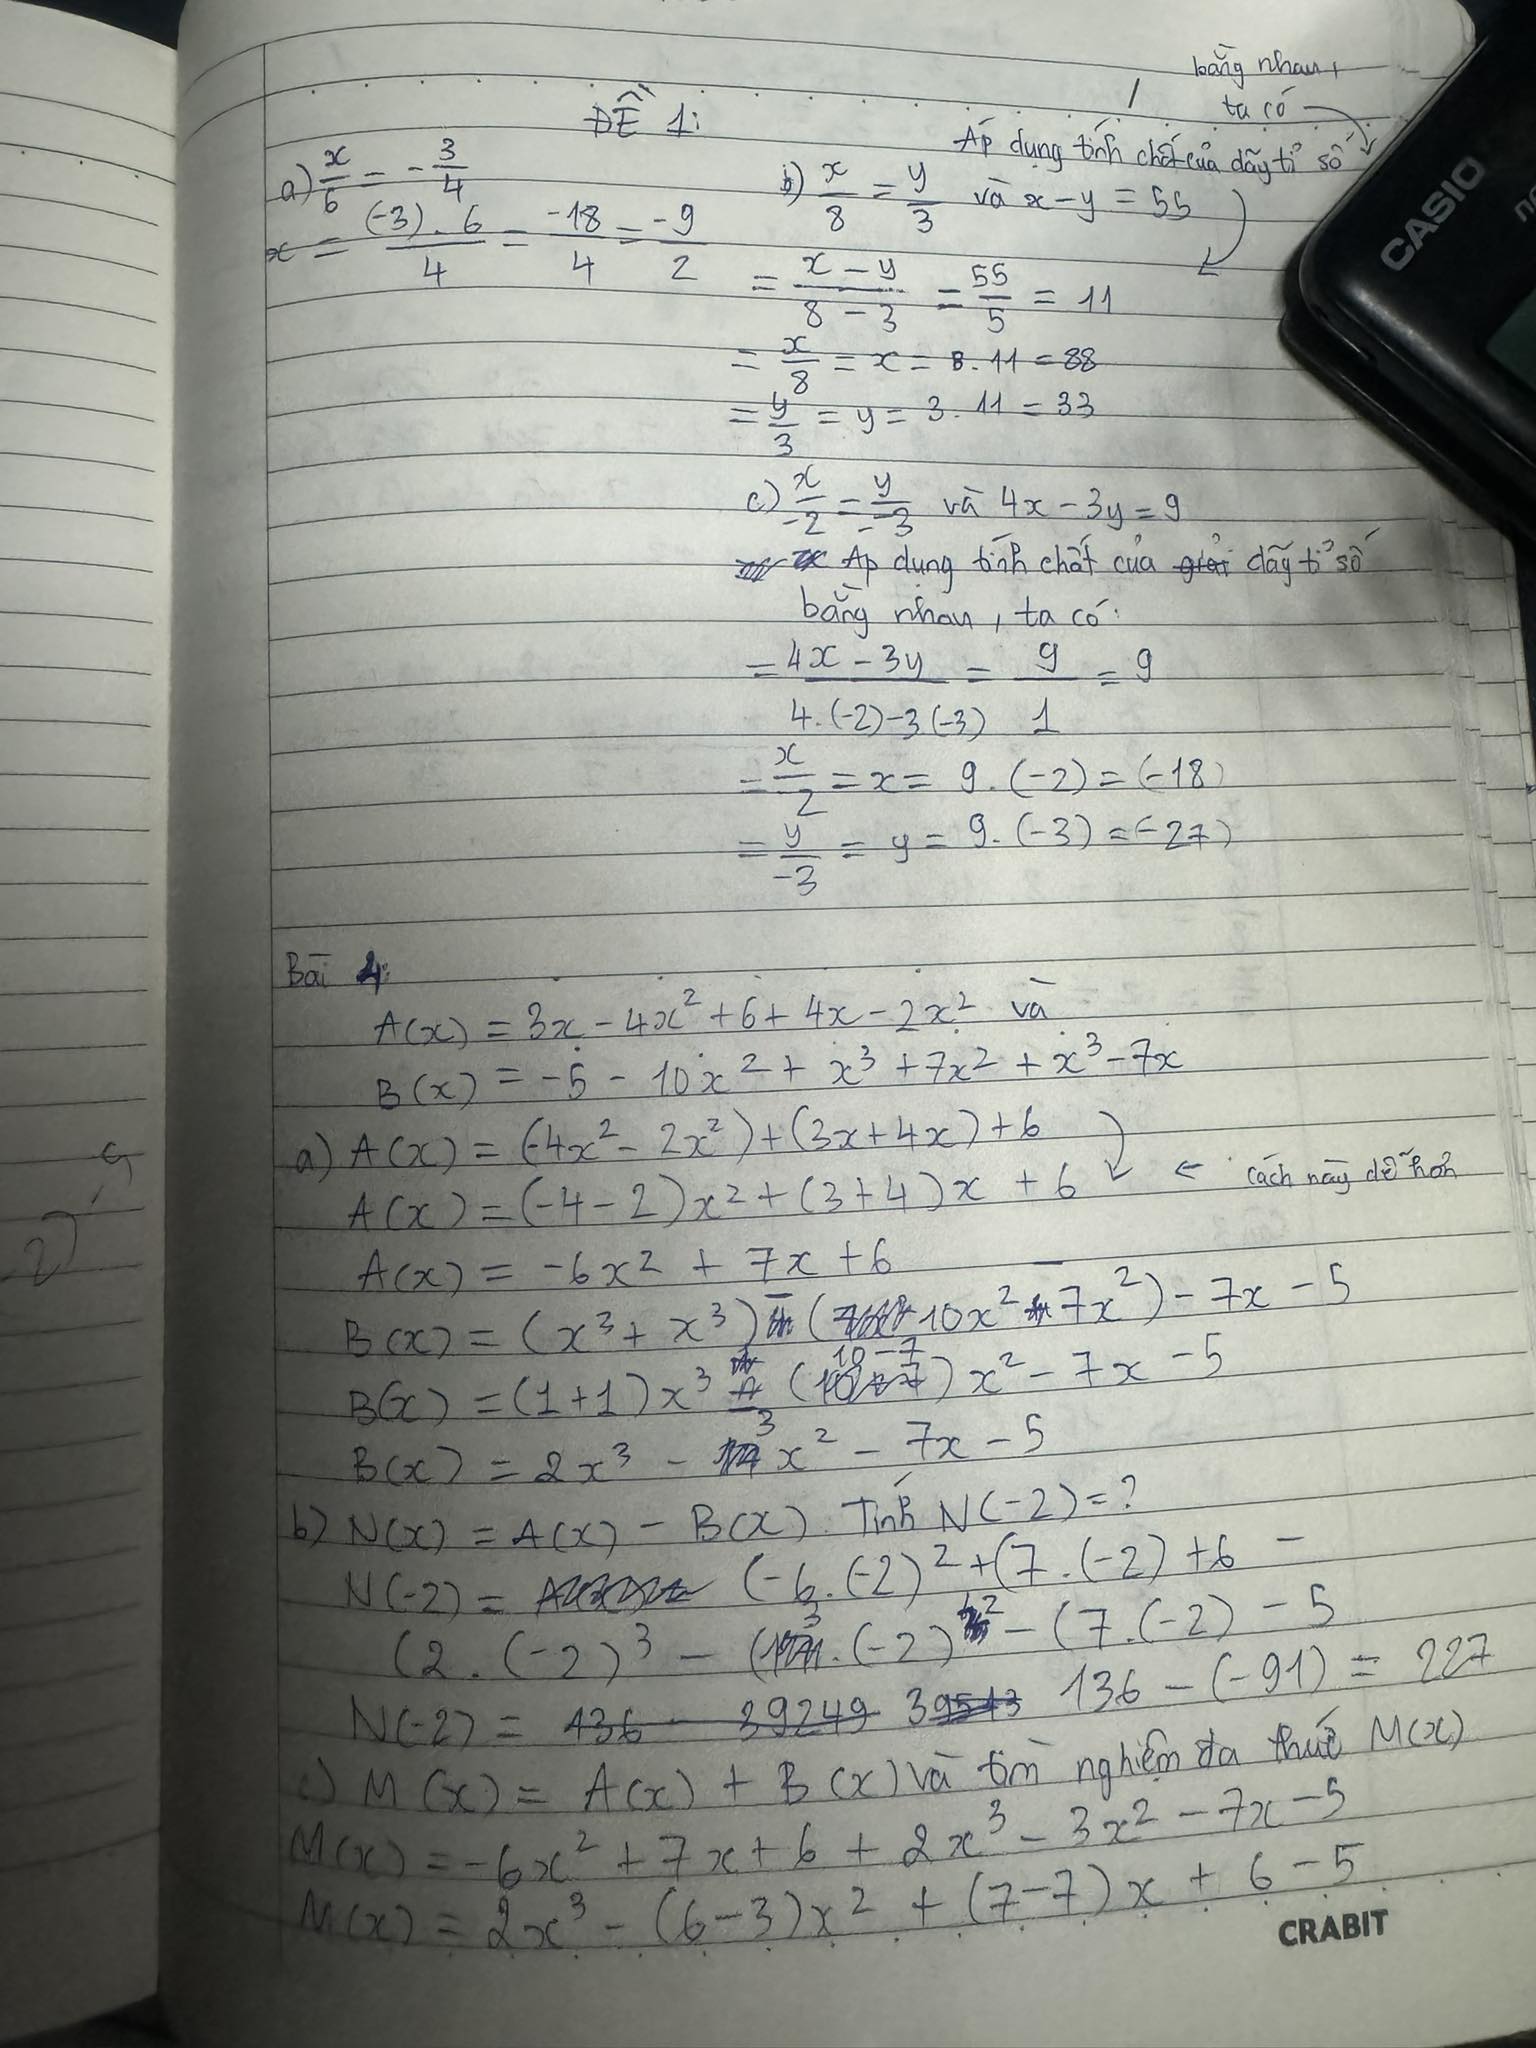 ĐỀ 1:
a) x/6 = - 3/4
x = (-3) . 6 / 4 = -18/4 = -9/2
bằng nhau,
ta có
Áp dụng tính chất của dãy tỉ số
b) x/8 = y/3 và x - y = 55
= x - y / 8 - 3 = 55/5 = 11
= x/8 = x = 8 . 11 = 88
= y/3 = y = 3 . 11 = 33
c) x/-2 = y/-3 và 4x - 3y = 9
Áp dụng tính chất của dãy tỉ số
bằng nhau, ta có:
= 4x - 3y / 4.(-2) - 3(-3) = 9/1 = 9
= x/-2 = x = 9 . (-2) = (-18)
= y/-3 = y = 9 . (-3) = (-27)
Bài 4:
A(x) = 3x - 4x² + 6 + 4x - 2x² và
B(x) = -5 - 10x² + x³ + 7x² + x³ - 7x
a) A(x) = (-4x² - 2x²) + (3x + 4x) + 6
A(x) = (-4 - 2)x² + (3 + 4)x + 6 ← cách này dễ hơn
A(x) = -6x² + 7x + 6
B(x) = (x³ + x³) - (10x² - 7x²) - 7x - 5
B(x) = (1 + 1)x³ - (10 - 7)x² - 7x - 5
B(x) = 2x³ - 3x² - 7x - 5
b) N(x) = A(x) - B(x). Tính N(-2) = ?
N(-2) = (-6.(-2)² + (7.(-2) + 6 -
(2.(-2)³ - (3.(-2)² - (7.(-2) - 5
N(-2) = 136 - 39249 39513 136 - (-91) = 227
c) M(x) = A(x) + B(x) và tìm nghiệm đa thức M(x)
M(x) = -6x² + 7x + 6 + 2x³ - 3x² - 7x - 5
M(x) = 2x³ - (6 - 3)x² + (7 - 7)x + 6 - 5
CRABIT
CASIO